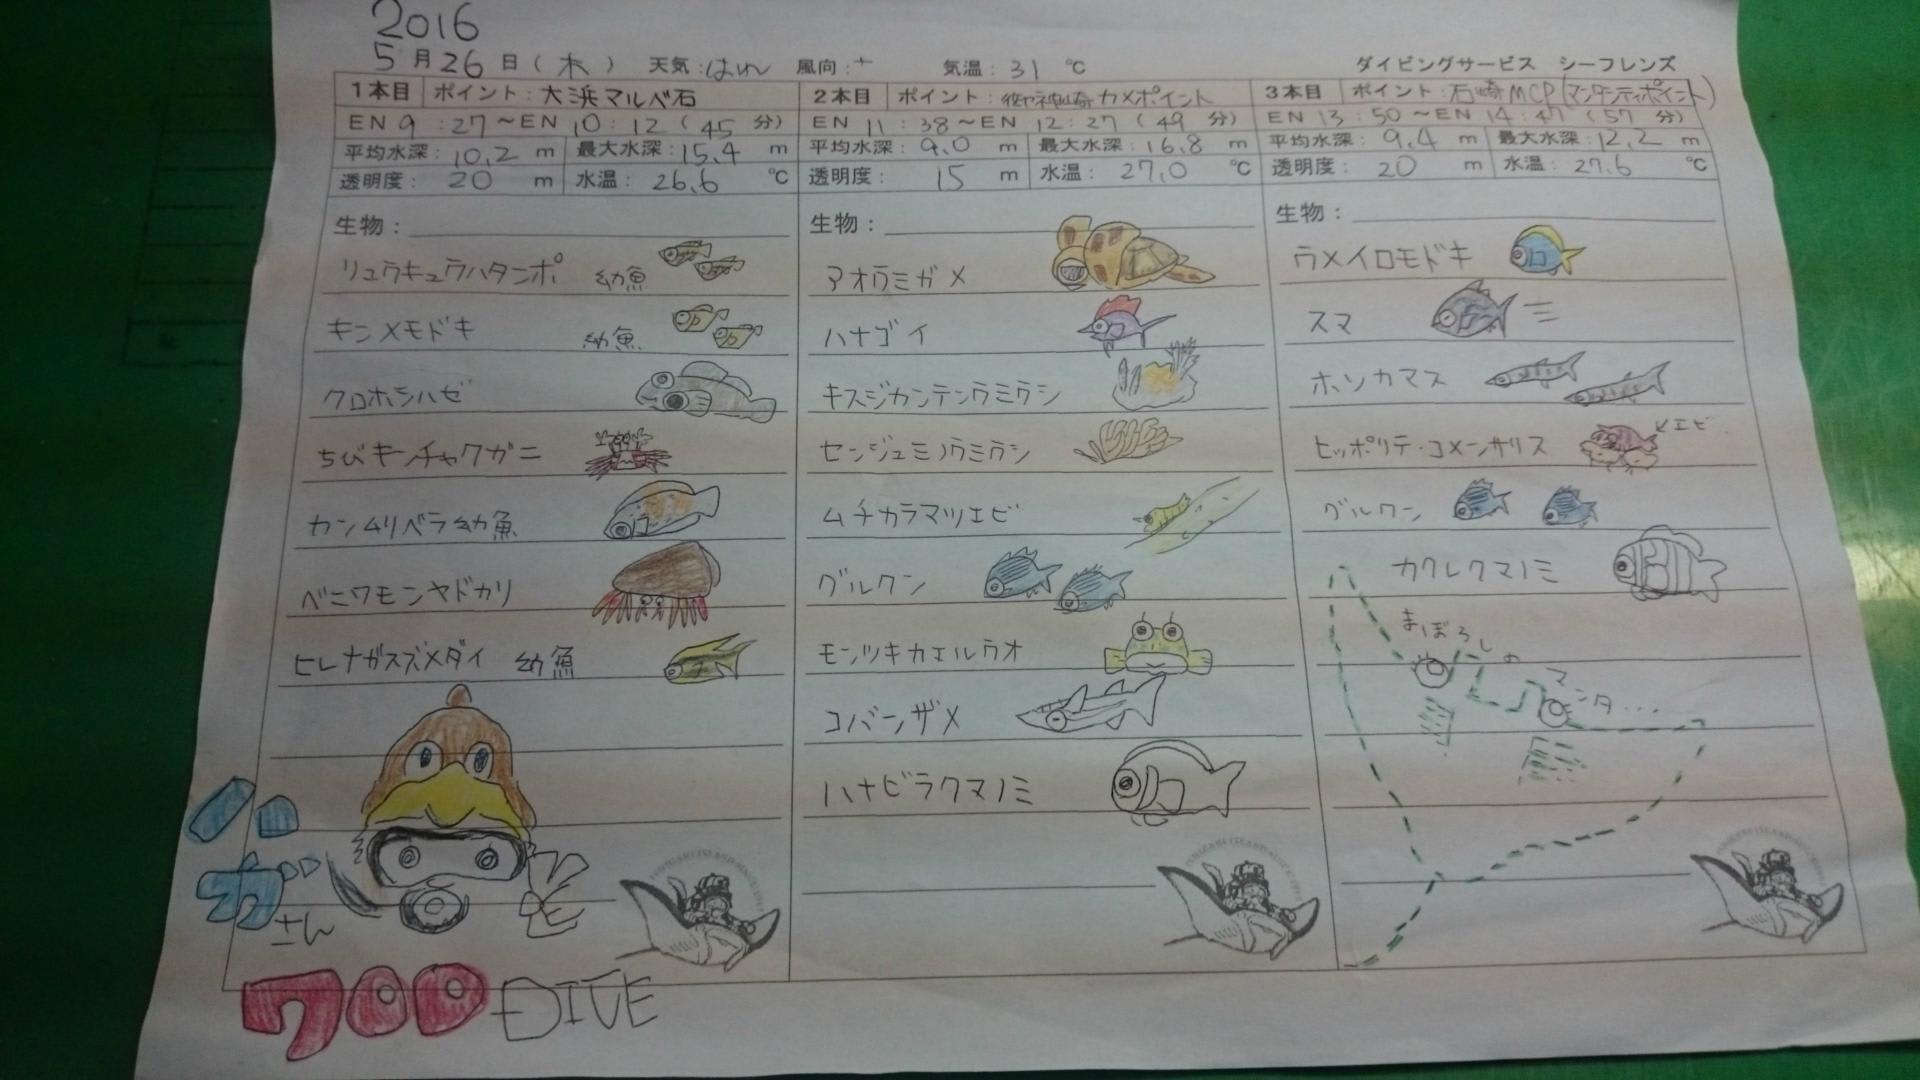 2016
5月26日(木) 天気:はれ 風向: 気温:31℃ ダイビングサービス シーフレンズ
1本目 ポイント:大浜マルベ石
EN 9:27～EN 10:12(45分)
平均水深:10.2m 最大水深:15.4m
透明度:20m 水温:26.6℃
生物:
リュウキュウハタンポ 幼魚
キンメモドキ 幼魚
クロホシハゼ
ちびキンチャクガニ
カンムリベラ幼魚
ベニワモンヤドカリ
ヒレナガスズメダイ 幼魚
さん
DIVE
2本目 ポイント:御神崎カメポイント
EN 11:38～EN 12:27(49分)
平均水深:9.0m 最大水深:16.8m
透明度:15m 水温:27.0℃
生物:
アオウミガメ
ハナゴイ
キスジカンテンウミウシ
センジュミノウミウシ
ムチカラマツエビ
グルクン
モンツキカエルウオ
コバンザメ
ハナビラクマノミ
3本目 ポイント:石崎MCP(マンタシティポイント)
EN 13:50～EN 14:47(57分)
平均水深:9.4m 最大水深:12.2m
透明度:20m 水温:27.6℃
生物:
ウメイロモドキ
スマ
ホソカマス
ヒッポリテ・コメンサリス
エビ
グルクン
カクレクマノミ
まぼろしの
マンタ...